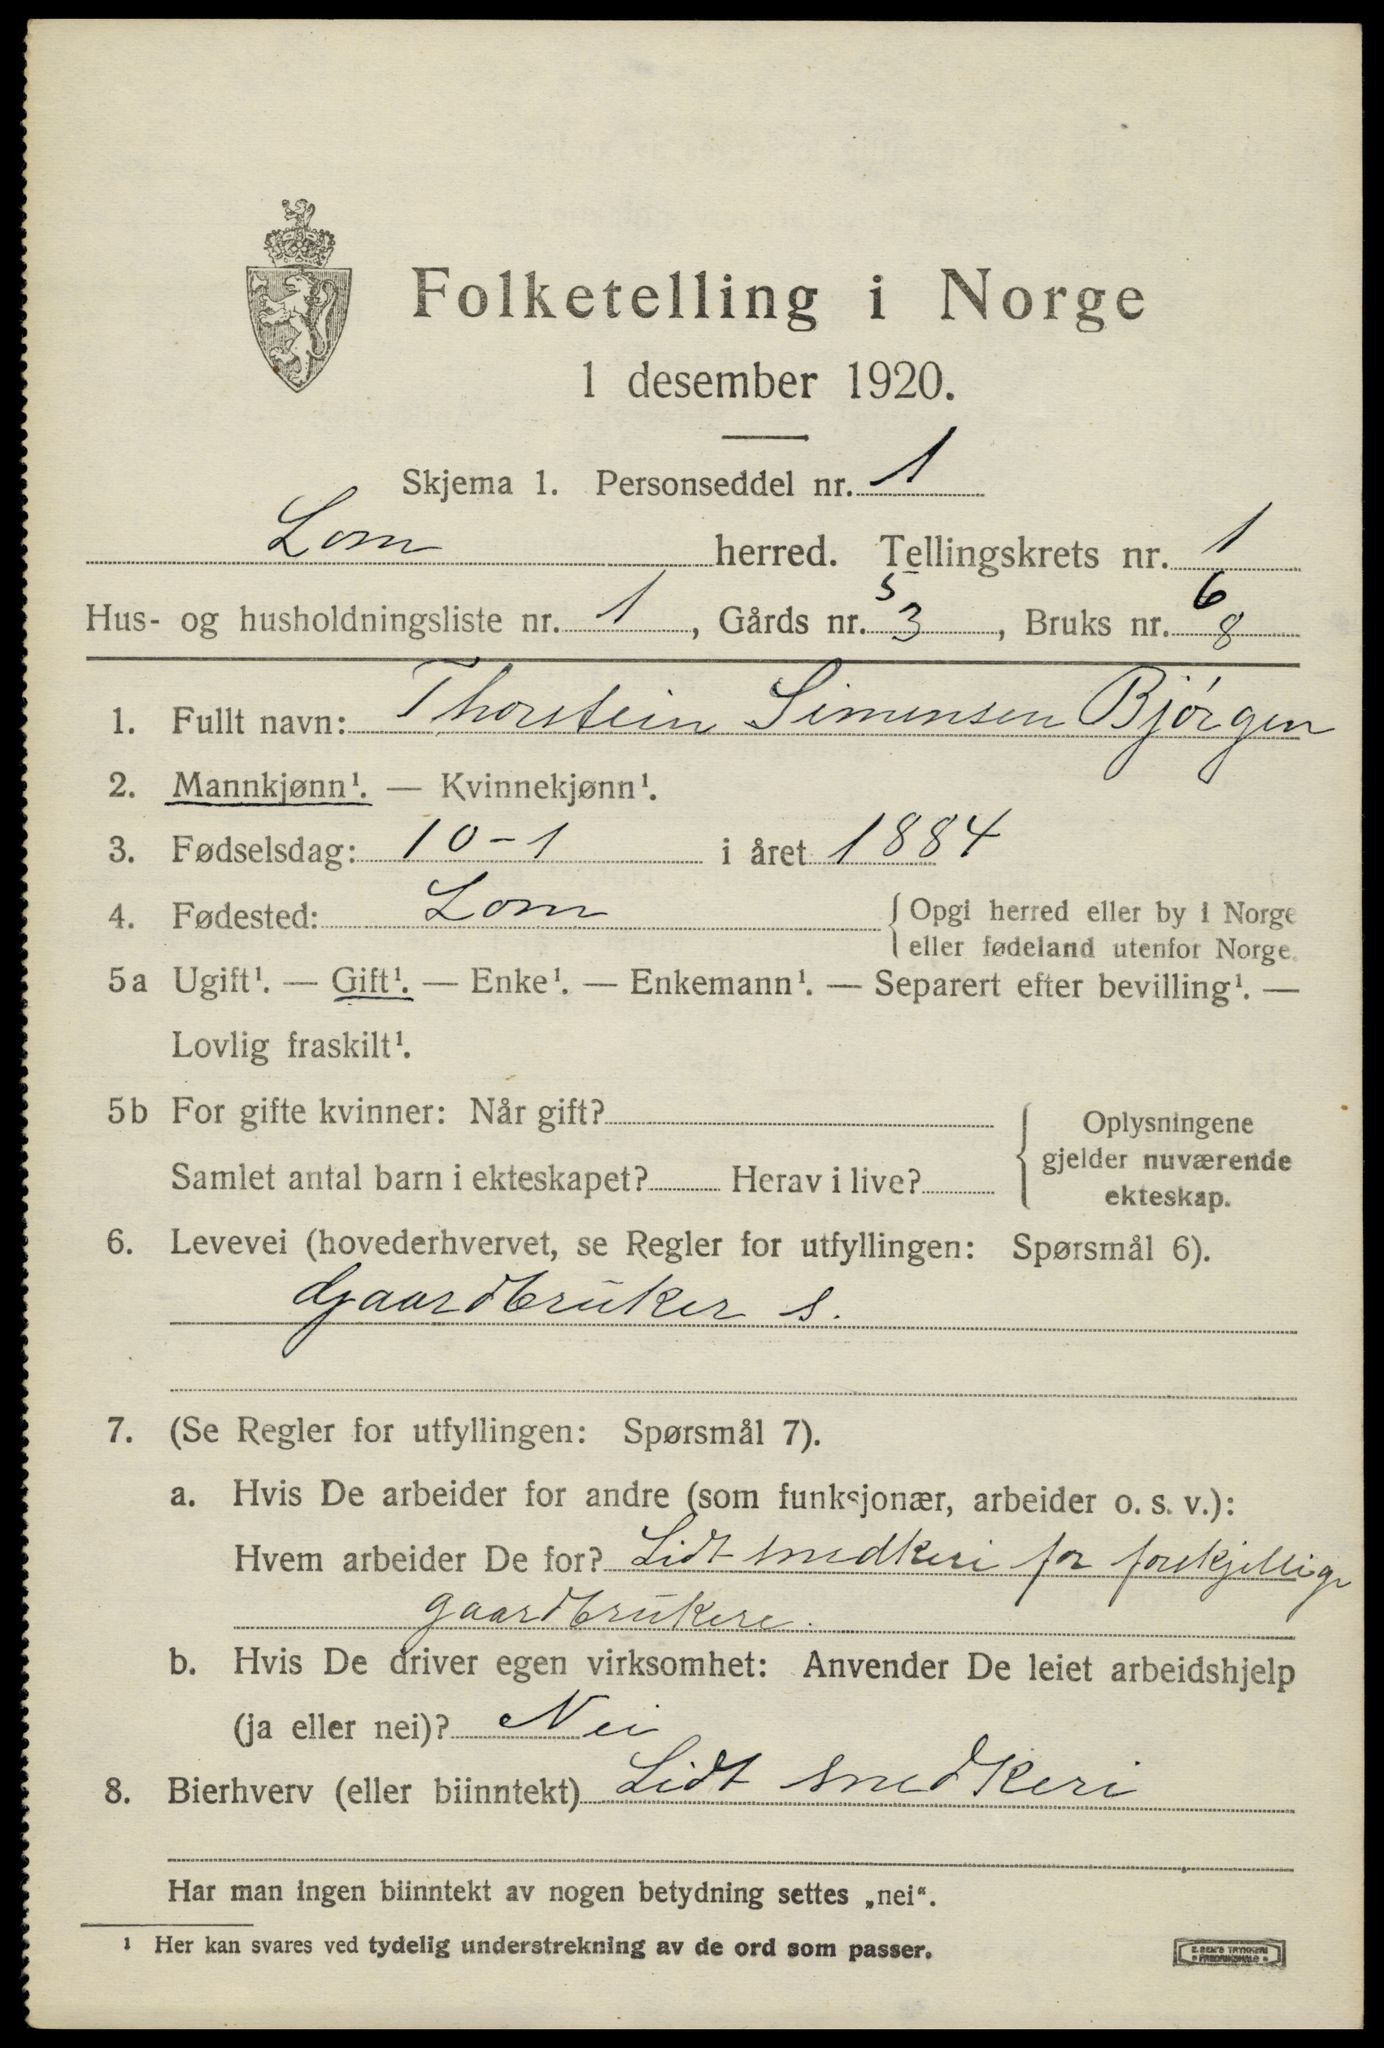 Folketelling i Norge
1 desember 1920.
Skjema 1. Personseddel nr. 1
Lom herred. Tellingskrets nr. 1
5 6
Hus- og husholdningsliste nr. 1, Gårds nr. 3, Bruks nr. 8
1. Fullt navn: Thorstein Simensen Bjørgen
2. Mannkjønn¹. — Kvinnekjønn¹.
3. Fødselsdag: 10-1 i året 1884
4. Fødested: Lom { Opgi herred eller by i Norge
eller fødeland utenfor Norge.
5a Ugift¹. — Gift¹. — Enke¹. — Enkemann¹. — Separert efter bevilling¹. —
Lovlig fraskilt¹.
5b For gifte kvinner: Når gift?
Samlet antal barn i ekteskapet? Herav i live?
{ Oplysningene
gjelder nuværende
ekteskap.
6. Levevei (hovederhvervet, se Regler for utfyllingen: Spørsmål 6).
Gaardbruker s.
7. (Se Regler for utfyllingen: Spørsmål 7).
a. Hvis De arbeider for andre (som funksjonær, arbeider o. s. v.):
Hvem arbeider De for? Lidt snedkeri for forskjellige
gaardbrukere.
b. Hvis De driver egen virksomhet: Anvender De leiet arbeidshjelp
(ja eller nei)? Nei
8. Bierhverv (eller biinntekt) Lidt snedkeri
Har man ingen biinntekt av nogen betydning settes „nei“.
¹ Her kan svares ved tydelig understrekning av de ord som passer.